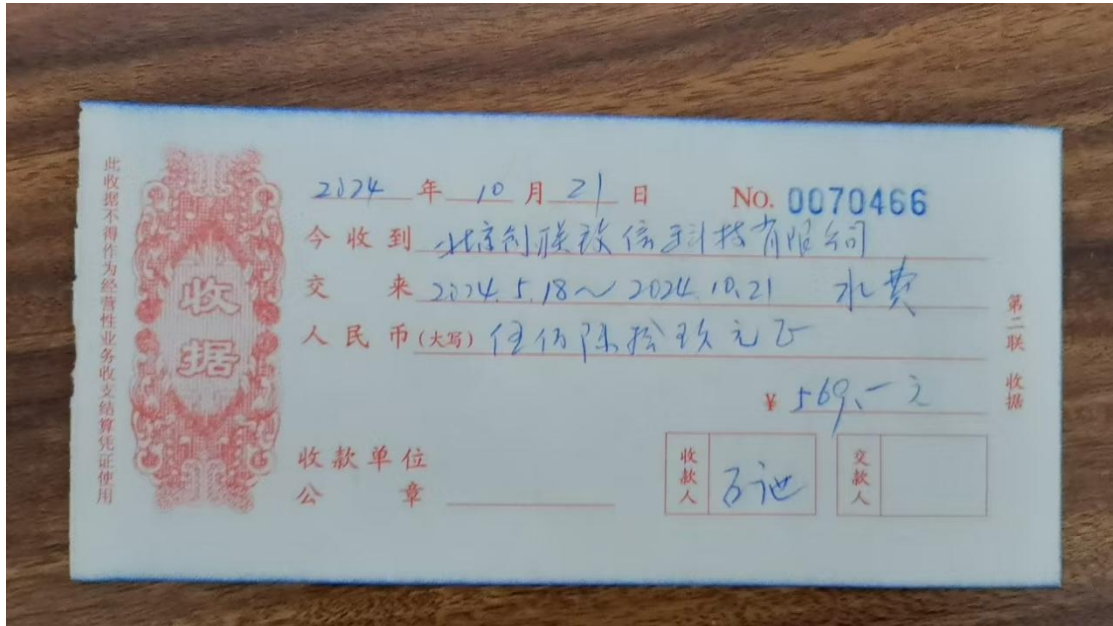 此收据不得作为经营性业务收支结算凭证使用
收据
2024 年 10 月 21 日 No. 0070466
今收到 北京创联致信科技有限公司
交来 2024.5.18～2024.10.21 水费
人民币(大写) 伍佰陆拾玖元正
¥ 569.一元
第二联 收据
收款单位
公章
收款人
交款人